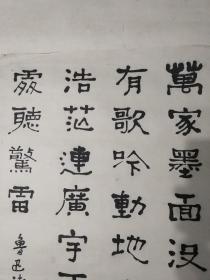 萬家墨面没
有歌吟動地
浩茫連廣宇
處聽驚雷
魯迅